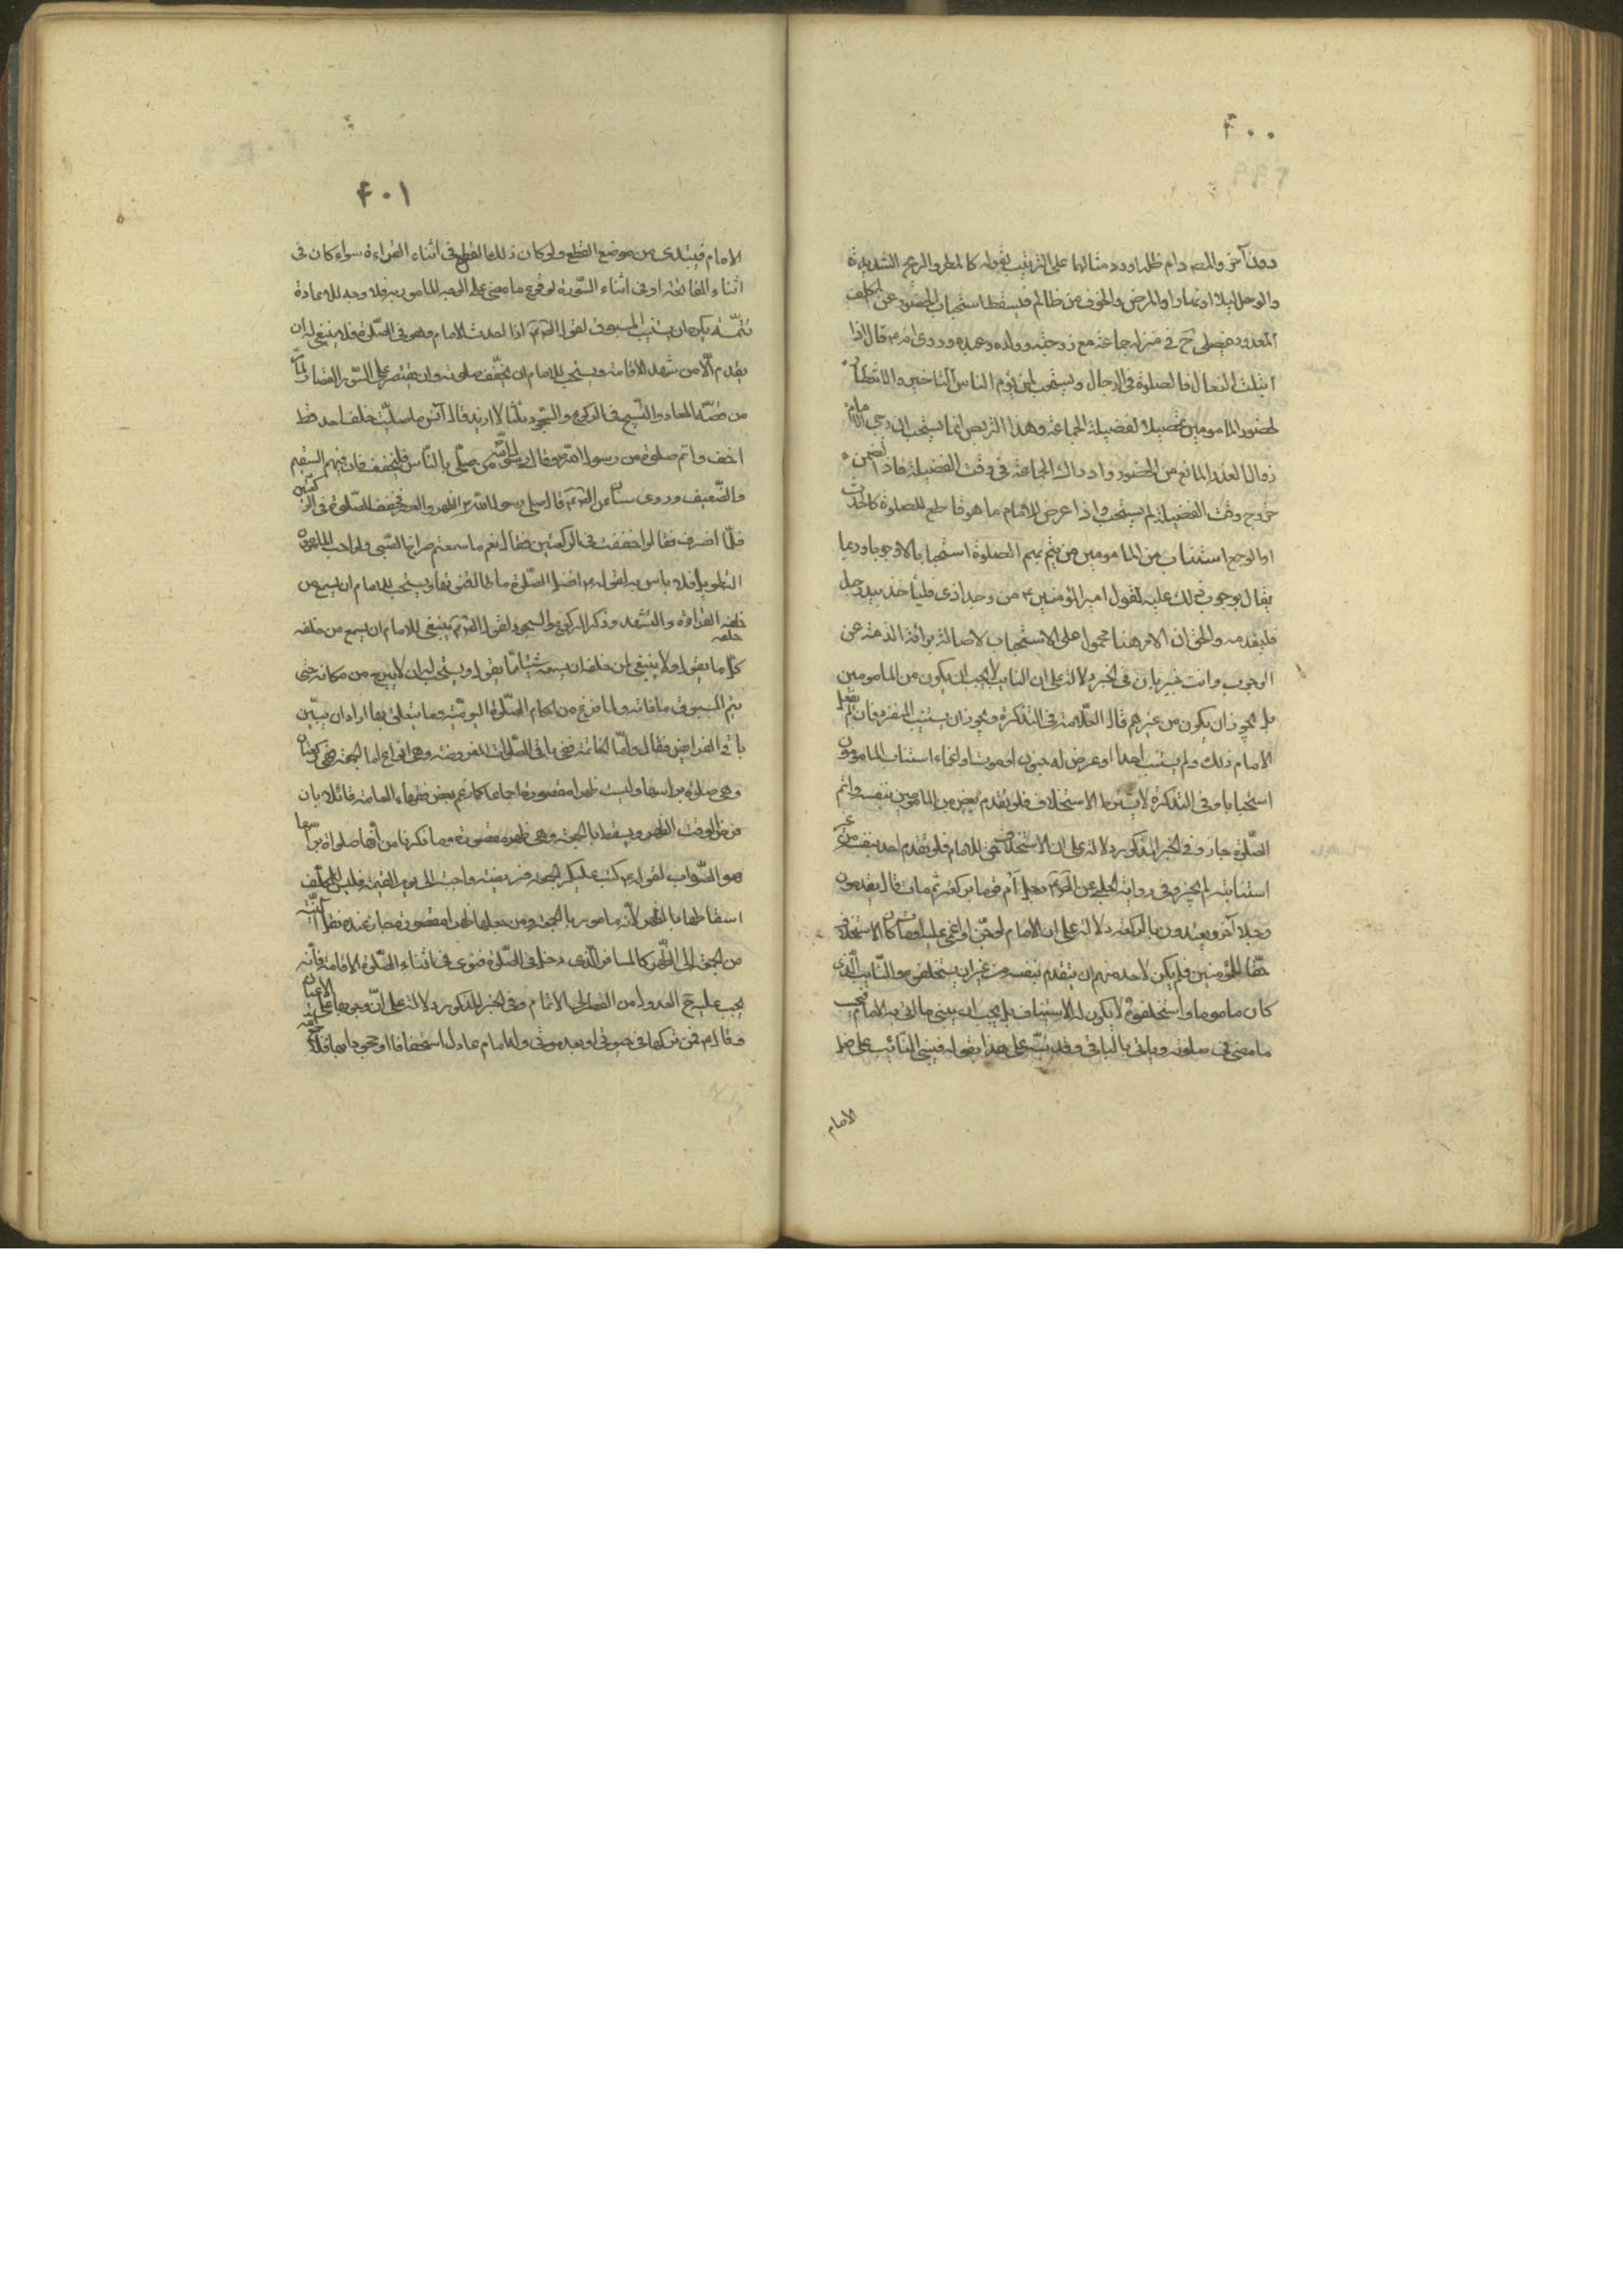 ٤٠٠
دون آخر والمصر دام ظله اورد مثالها على الترتيب بقوله كالمطر والريح الشديدة
والوحل ليلا او نهارا والمرض والخوف من ظالم فيسقط استحباب الحضور عن المكلف
المعذور فيصلى ح في منزله جماعة مع زوجته وولده وعبيده وروى انه ص قال اذا
ابتلت النعال فالصلوة في الرحال ويستحب لمن يؤم الناس التاخير والانتظار
لحضور المامومين تحصيلا لفضيلة الجماعة وهذا التربص انما يستحب ان رجى الامام
زوال العذر المانع من الحضور وادراك الجماعة في وقت الفضيلة فاذا تضمن
خروج وقت الفضيلة لم يستحب واذا عرض للامام ما هو قاطع للصلوة كالحدث
او الوجع استناب من المامومين من يتم بهم الصلوة استحبابا لا وجوبا وربما
يقال بوجوب ذلك عليه لقول امير المؤمنين ع من وجد اذى فلياخذ بيد رجل
فليقدمه والحق ان الامر هنا محمول على الاستحباب لاصالة برائة الذمة عن
الوجوب وانت خبير بان في الخبر دلالة على ان النايب لا يجب ان يكون من المامومين
بل يجوز ان يكون من غيرهم قال العلامة في التذكرة ويجوز ان يستنيب المنفرد فان لم يفعل
الامام ذلك ولم يستنب احدا او عرض له جنون او موت او اغماء استناب المامومون
استحبابا وفي التذكرة لا يشترط الاستخلاف فلو تقدم بعض من المامومين بنفسه واتم
الصلوة جاز وفي الخبر المذكور دلالة على ان الاستخلاف حق للامام فلو تقدم احد بنفسه من غير
استنابته لم يجز وفي رواية الحلبي عن الص ع رجل ام قوما بركعة ثم مات قال يقدمون
رجلا آخر ويعتدون بالركعة دلالة على ان الامام لو جن او اغمى عليه او مات كان الاستخلاف
حقا للمؤمنين فلم يكن لاحد منهم ان يتقدم بنفسه من غير ان يستخلفوه والنايب الذى
كان ماموما واستخلفوه لا يكون له الاستيناف بل يجب ان يبنى ما اتى به الامام فيحسب
ما مضى من صلوته وياتى بالباقى وقد نبه على هذا بقوله فيبنى النائب على صلوة
الامام
٤٠١
الامام فيبتدى من موضع القطع ولو كان ذلك القطع في اثناء القراءة سواء كان في
اثناء الفاتحة او في اثناء السورة لوقوع ما مضى على الوجه المامور به فلا وجه للاعادة
تتمة يكره ان يستنيب المسبوق لقول الص ع اذا احدث الامام وهو في الصلوة فلا ينبغى له ان
يقدم الا من شهد الاقامة ويستحب للامام ان يخفف صلوته وان يقتصر على السور القصار
والتسبيح في الركوع والسجود ثلثا لا ازيد قال انس ما صليت خلف احد قط
اخف واتم صلوة من رسول الله ص وقال من صلى بالناس فليخفف فان فيهم السقيم
والضعيف وروى عن الص ع قال صلى رسول الله ص الظهر والعصر فخفف الصلوة في الركعتين
فلما انصرف فقالوا خففت في الركعتين فقال نعم ما سمعتم صراخ الصبى ولو احب المامومون
التطويل فلا باس به لقوله ص افضل الصلوة ما طال قنوتها ويستحب للامام ان يسمع من
خلفه القراءة والتشهد وذكر الركوع والسجود لقول الص ع ينبغى للامام ان يسمع من خلفه
كل ما يقول ولا ينبغى لمن خلفه ان يسمعه شيئا مما يقول ويستحب له ان لا يبرح من مكانه حتى
يتم المسبوق ما فاته ولما فرغ من احكام الصلوة اليومية وما يتعلق بها اراد ان يبين
باقى الفرايض فقال واما الخاتمة ففي باقى الصلوات المفروضة وهى انواع اما الجمعة فهي ركعتان
وهى صلوة براسها وليست ظهرا مقصورة اجماعا كما زعم بعض فقهاء العامة قائلا بان
فرض الوقت الظهر ويسقط بالجمعة وهى ظهر مقصورة وما ذكرنا من انها صلوة براسها
هو الصواب لقوله ص كتب عليكم الجمعة فريضة واجبة الى يوم القيمة فليس للمكلف
اسقاطها بالظهر لانه مامور بالجمعة ومن جعلها ظهرا مقصورة جاز عنده نقل النية
من الجمعة الى الظهر كالمسافر الذى دخل في الصلوة فنوى في اثناء الصلوة الاقامة فانه
يجب عليه ح العدول من القصر الى الاتمام وفي الخبر المذكور دلالة على ان وجوبها على الاعيان
وقال ص فمن تركها في حيوتى او بعد موتى وله امام عادل استخفافا او جحودا بها فلا جمع الله